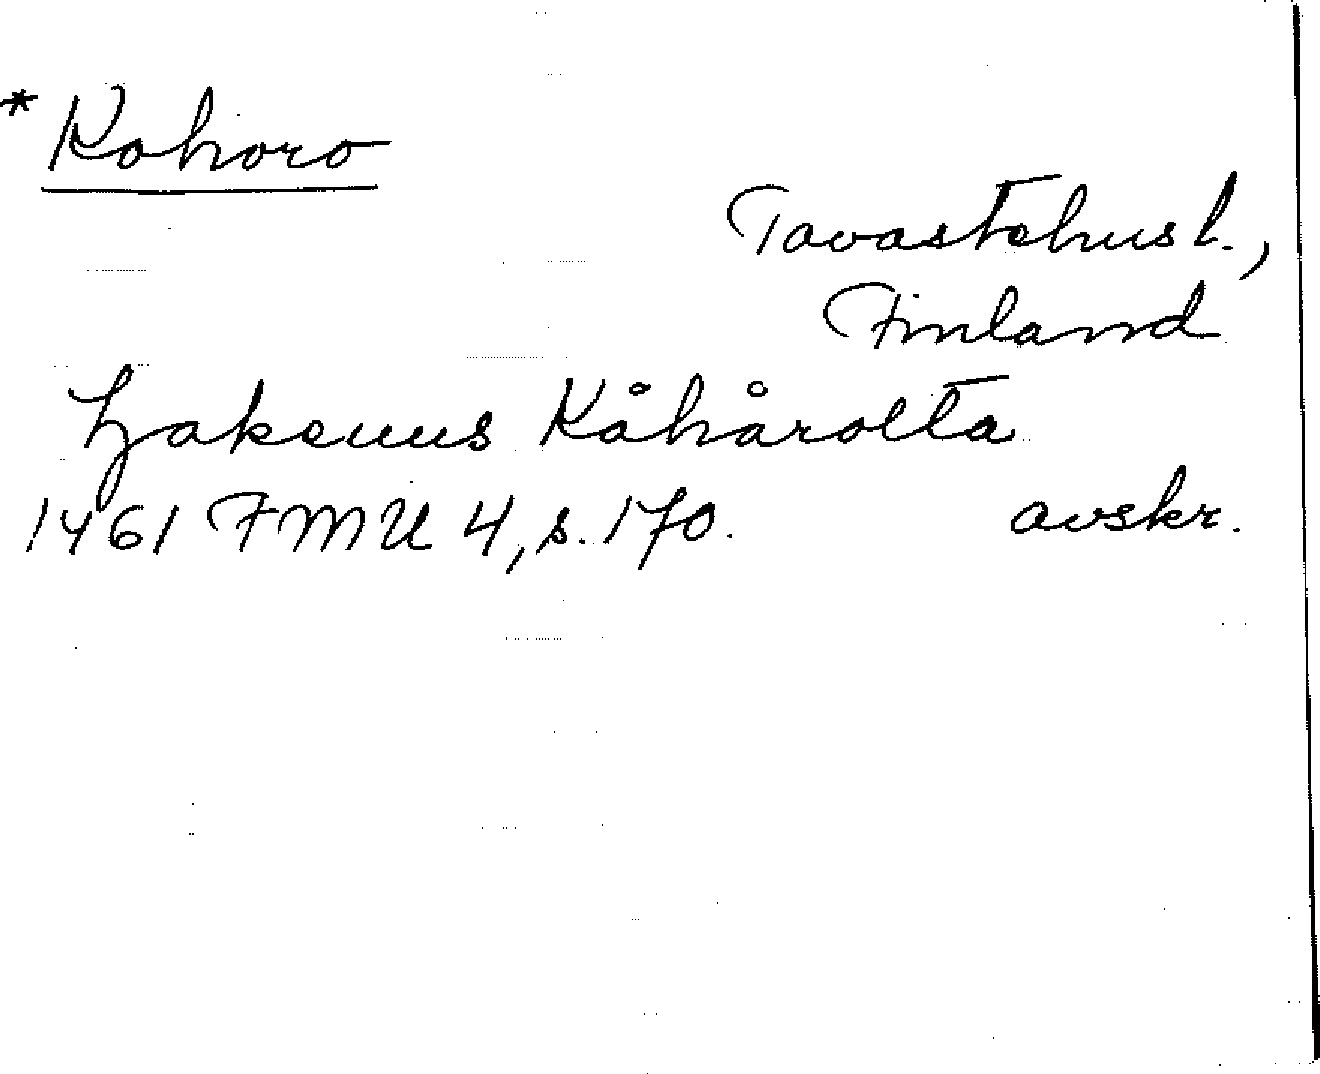 * Kohoro
Tavastehus l.,
Finland
Hakenus Kåhårolta
1461 FMU 4, s. 170. avskr.